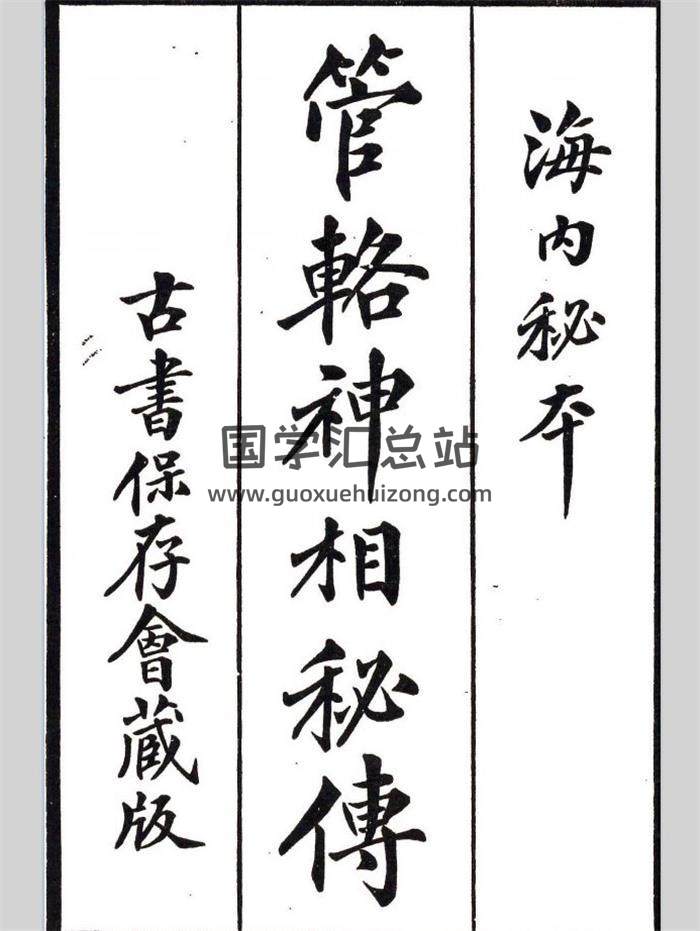 海内秘本
管輅神相秘傳
古書保存會藏版
国学汇总站
www.guoxuehuizong.com